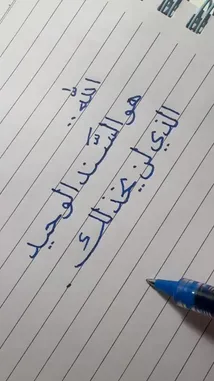 اللّٰه..
هو السَّند الوحيد
الذي لن يخذلك.